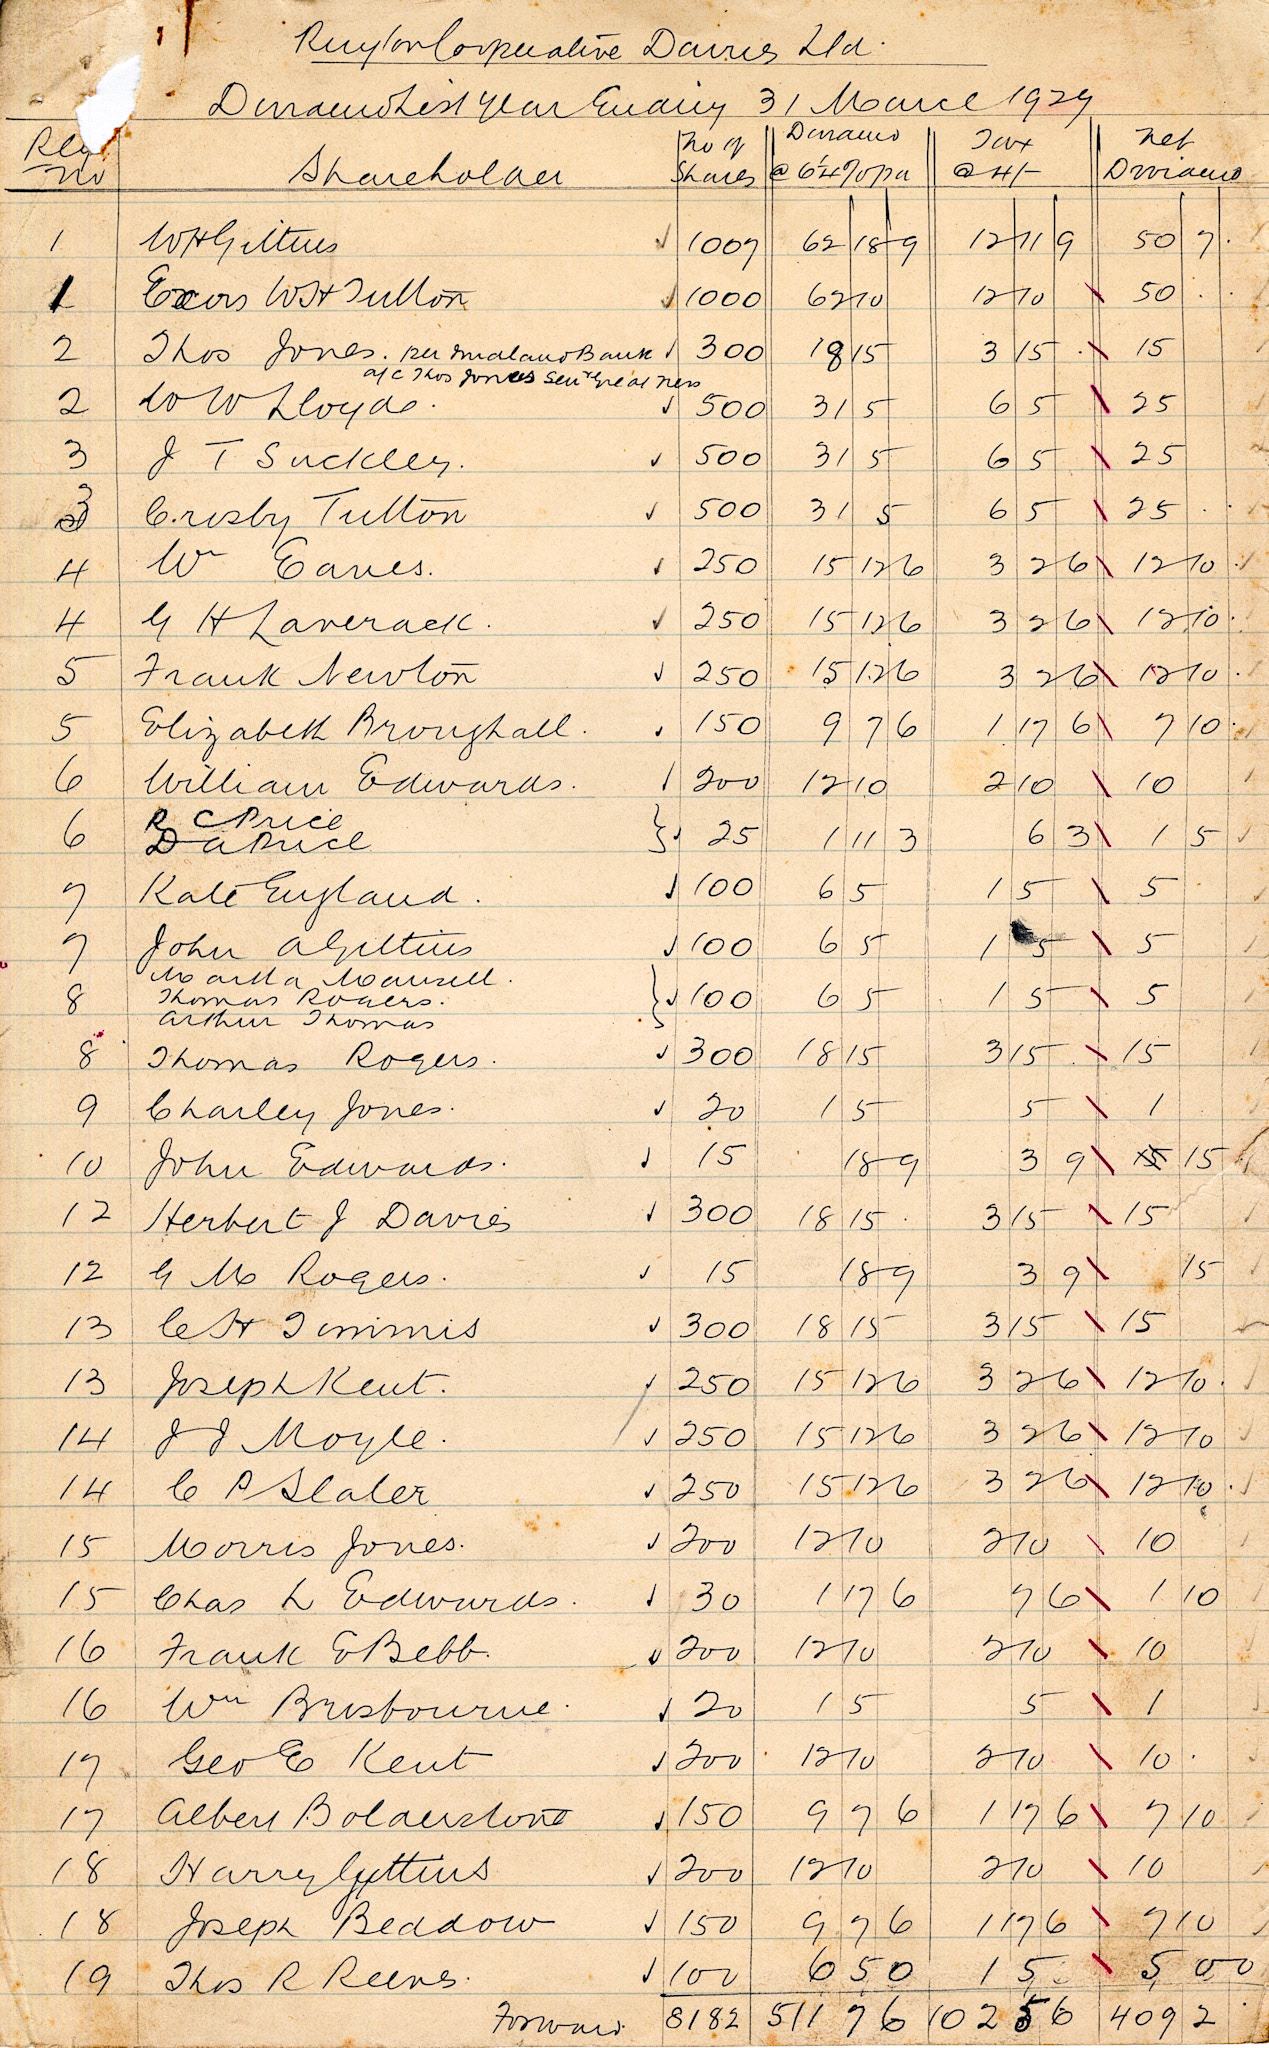 Ruyton Cooperative Dairies Ltd.
Dividend List Year Ending 31 March 1929
Reg No Shareholder No of Shares Dividend @ 6¼% pa Tax @ 4/- Net Dividend
1 W H Gittins 1007 62 18 9 12 11 9 50 7
1 Exors W H Tutton 1000 62 10 12 10 50
2 Thos Jones. per Midland Bank 300 18 15 3 15 15
a/c Thos Jones Senr Great Ness
2 W W Lloyd. 500 31 5 6 5 25
3 J T Suckley. 500 31 5 6 5 25
3 Crosby Tutton 500 31 5 6 5 25
4 Wm Eaves. 250 15 12 6 3 2 6 12 10
4 G H Laverack. 250 15 12 6 3 2 6 12 10
5 Frank Newton 250 15 12 6 3 2 6 12 10
5 Elizabeth Broughall. 150 9 7 6 1 17 6 7 10
6 William Edwards. 200 12 10 2 10 10
R C Price
6 D A Price } 25 1 11 3 6 3 1 5
7 Kate England. 100 6 5 1 5 5
7 John A Gittins 100 6 5 1 5 5
Martha Mansell.
8 Thomas Rogers. } 100 6 5 1 5 5
Arthur Thomas
8 Thomas Rogers. 300 18 15 3 15 15
9 Charley Jones. 20 1 5 5 1
10 John Edwards. 15 18 9 3 9 15
12 Herbert J Davies 300 18 15 3 15 15
12 G M Rogers. 15 18 9 3 9 15
13 C H Timmis 300 18 15 3 15 15
13 Joseph Kent. 250 15 12 6 3 2 6 12 10
14 J J Moyle. 250 15 12 6 3 2 6 12 10
14 C P Slater 250 15 12 6 3 2 6 12 10
15 Morris Jones. 200 12 10 2 10 10
15 Chas L Edwards. 30 1 17 6 7 6 1 10
16 Frank E Bebb. 200 12 10 2 10 10
16 Wm Brisbourne. 20 1 5 5 1
17 Geo E Kent 200 12 10 2 10 10
17 Albert Bolderstone 150 9 7 6 1 17 6 7 10
18 Harry Gittins 200 12 10 2 10 10
18 Joseph Beddow 150 9 7 6 1 17 6 7 10
19 Thos R Reeves. 100 6 5 0 1 5 5 0 0
Forward 8182 511 7 6 102 5 6 409 2